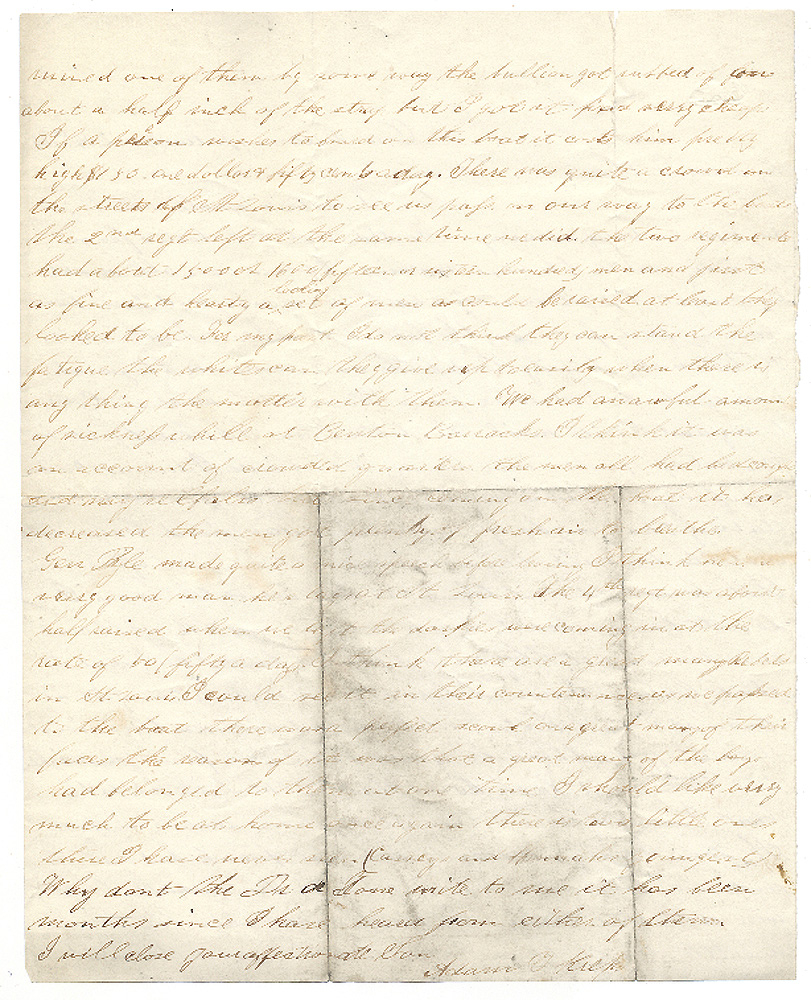 ruined one of them by some way the bullion got rubbed of for
about a half inch of the stay but I got it fixed very cheap
If a person wishes to board on this boat it costs him pretty
high $1 50 one dollar & fifty cents a day. There was quite a crowd in
the streets of St Louis to see us pass on our way to the boat
The 2nd regt left at the same time we did. the two regiments
had about 1500 or 1600 fifteen or sixteen hundred men and just
looking
as fine and hearty a set of men as could be raised at least they
looked to be. For my part I do not think they can stand the
fatigue the whites can they give up to easily when there is
any thing the matter with them. We had an awful amount
of sickness while at Benton Barracks. I think it was
on account of crowded quarters. the men all had bad
and since coming on the boat it has
decreased the men got plenty of fresh air to breathe
Gen Pyle made quite a nice speech before leaving I think he is a
very good man he is great St Louis. The 4th regt was about
half raised when we left the darkies were coming in at the
rate of 50 (fifty a day). I think there are a good many Rebels
in St Louis I could see it in their countenances as we passed
to the boat there was a perfect scowl on a great many of their
faces the reason of it was that a great many of the boys
had belonged to them at one time I should like very
much to be at home once again there is two little ones
there I have never seen (Carseys and Hannahs youngest)
Why dont the Dr & Tom write to me it has been
months since I have heard from either of them
I will close your affectionate Son